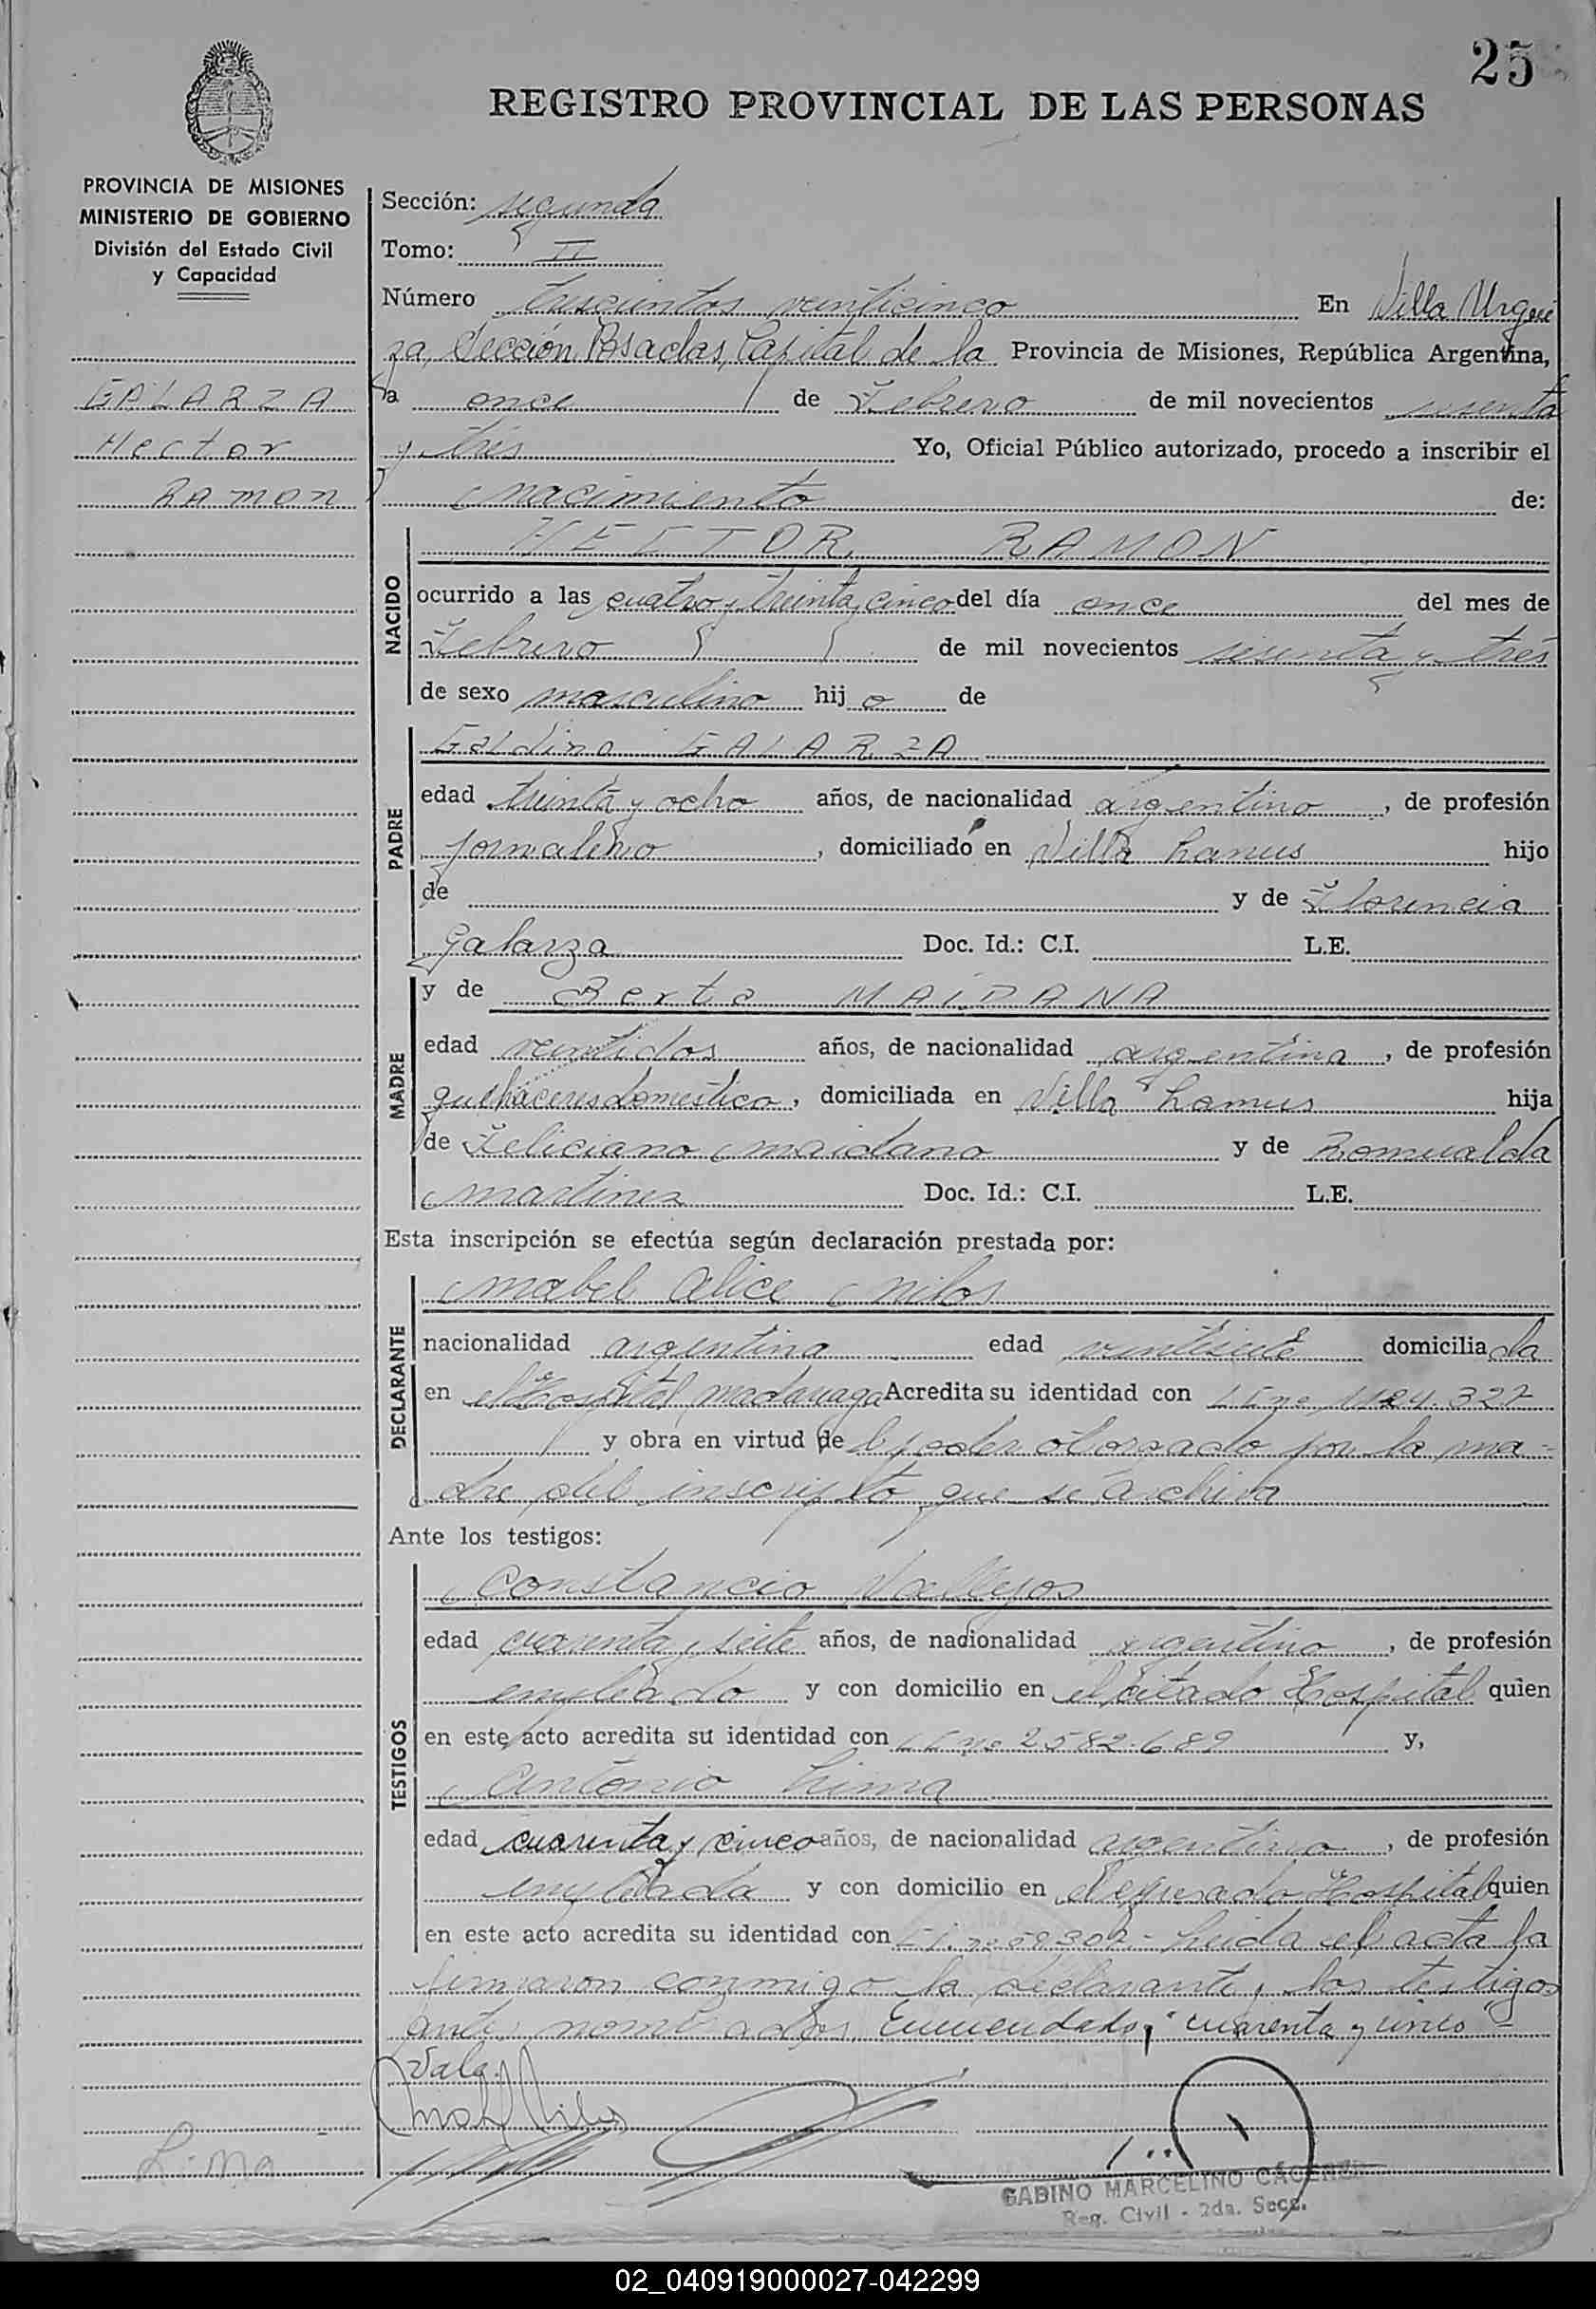 25
REGISTRO PROVINCIAL DE LAS PERSONAS
PROVINCIA DE MISIONES
MINISTERIO DE GOBIERNO
División del Estado Civil
y Capacidad
GALARZA
Hector
Ramon
Sección: segunda
Tomo: II
Número trescientos veinticinco En Villa Urqui
za, Sección Posadas, Capital de la Provincia de Misiones, República Argentina,
a once de Febrero de mil novecientos sesenta
y tres Yo, Oficial Público autorizado, procedo a inscribir el
nacimiento de:
NACIDO
HECTOR RAMON
ocurrido a las cuatro y treinta y cinco del día once del mes de
Febrero de mil novecientos sesenta y tres
de sexo masculino hijo de
PADRE
Galdino GALARZA
edad treinta y ocho años, de nacionalidad argentino, de profesión
jornalero, domiciliado en Villa Lanus hijo
de y de Florencia
Galarza Doc. Id.: C.I. L.E.
MADRE
y de Berta MAIDANA
edad veintidos años, de nacionalidad argentina, de profesión
quehaceres domestico, domiciliada en Villa Lanus hija
de Feliciano Maidana y de Romualda
Martinez Doc. Id.: C.I. L.E.
Esta inscripción se efectúa según declaración prestada por:
DECLARANTE
Mabel Alice Milos
nacionalidad argentina edad veintisiete domiciliada
en el Hospital Madariaga Acredita su identidad con 1124.327
y obra en virtud del poder otorgado por la ma-
dre del inscripto que se archiva
Ante los testigos:
TESTIGOS
Constancio Vallejos
edad cuarenta y siete años, de nacionalidad argentino, de profesión
empleado y con domicilio en el citado Hospital quien
en este acto acredita su identidad con no 2582.689 y,
Antonio Lima
edad cuarenta y cinco años, de nacionalidad argentino, de profesión
empleado y con domicilio en el Hospital quien
en este acto acredita su identidad con Leida el acta la
firmaron conmigo la declarante y los testigos
ante nombrados Enmendado: "cuarenta y cinco"
Vale.
Lima
GABINO MARCELINO
Reg. Civil - 2da. Secc.
02_040919000027-042299